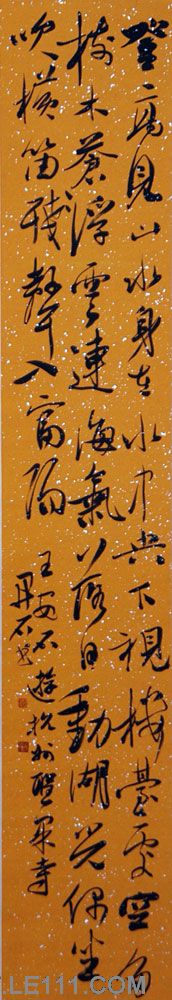 登高見山水身在水中央下視樓臺處空多
樹木蒼浮雲連海氣落日動湖光偶坐
吹橫笛殘聲入富陽
王安石遊杭州聖果寺
LE111.COM